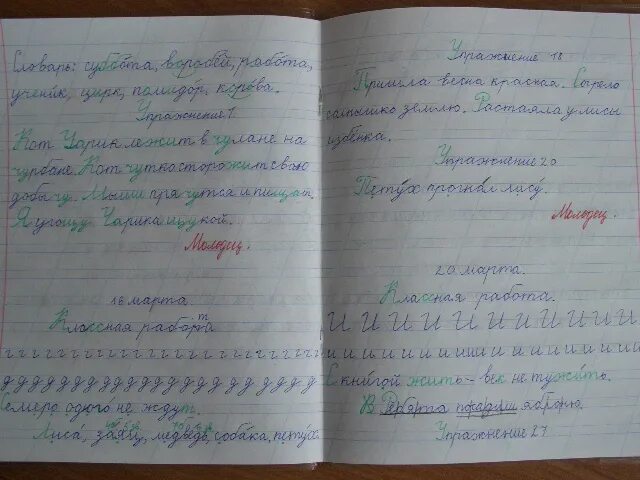 Словарь: суббота, воробей, работа,
ученик, цирк, помидор, корова.
Упражнение 1
Кот Чарик лежит в чулане на
чурбане. Кот чутко сторожит свою
добычу. Мыши прячутся и пищат.
Я угощу Чарика щукой.
Молодец.
16 марта.
Классная работа
г г г г г г г г г г г г г г г г г г г г
д д д д д д д д д д д д д д д д д д
Семеро одного не ждут.
Лиса, заяц, медведь, собака, петух.
Упражнение 18
Пришла весна красная. Согрело
солнышко землю. Растаяла у лисы
избёнка.
Упражнение 20
Петух прогнал лису.
Молодец.
20 марта.
Классная работа.
И И И И И И И И И И И
и и и и и и и и и и и и и и и
С книгой жить – век не тужить.
В
Упражнение 27